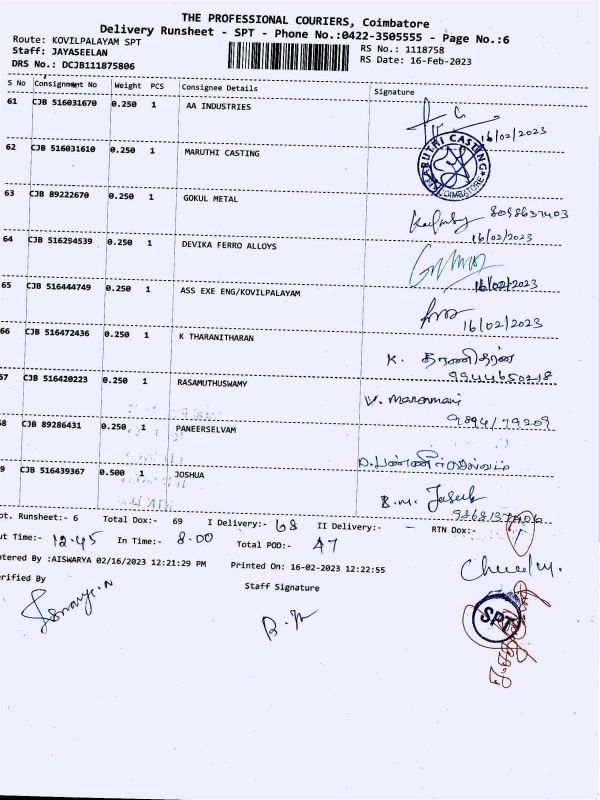 THE PROFESSIONAL COURIERS, Coimbatore
Delivery Runsheet - SPT - Phone No.:0422-3505555 - Page No.:6
Route: KOVILPALAYAM SPT
RS No.: 1118758
Staff: JAYASEELAN
RS Date: 16-Feb-2023
DRS No.: DCJB111875806
S No Consignment No Weight PCS Consignee Details Signature
61 CJB 516031670 0.250 1 AA INDUSTRIES
16/02/2023
62 CJB 516031610 0.250 1 MARUTHI CASTING
MARUTHI CASTING
COIMBATORE
63 CJB 89222670 0.250 1 GOKUL METAL
16/02/2023
64 CJB 516294539 0.250 1 DEVIKA FERRO ALLOYS
16/02/2023
65 CJB 516444749 0.250 1 ASS EXE ENG/KOVILPALAYAM
16/02/2023
66 CJB 516472436 0.250 1 K THARANITHARAN
K. தரணிதரன்
67 CJB 516420223 0.250 1 RASAMUTHUSWAMY
V.
68 CJB 89286431 0.250 1 PANEERSELVAM
69 CJB 516439367 0.500 1 JOSHUA
B.M.
pt. Runsheet:- 6 Total Dox:- 69 I Delivery:- 68 II Delivery:- - RTN Dox:- 1
ut Time:- 12.45 In Time:- 8.00 Total POD:- 47
ntered By :AISWARYA 02/16/2023 12:21:29 PM Printed On: 16-02-2023 12:22:55
erified By Staff Signature
SPT